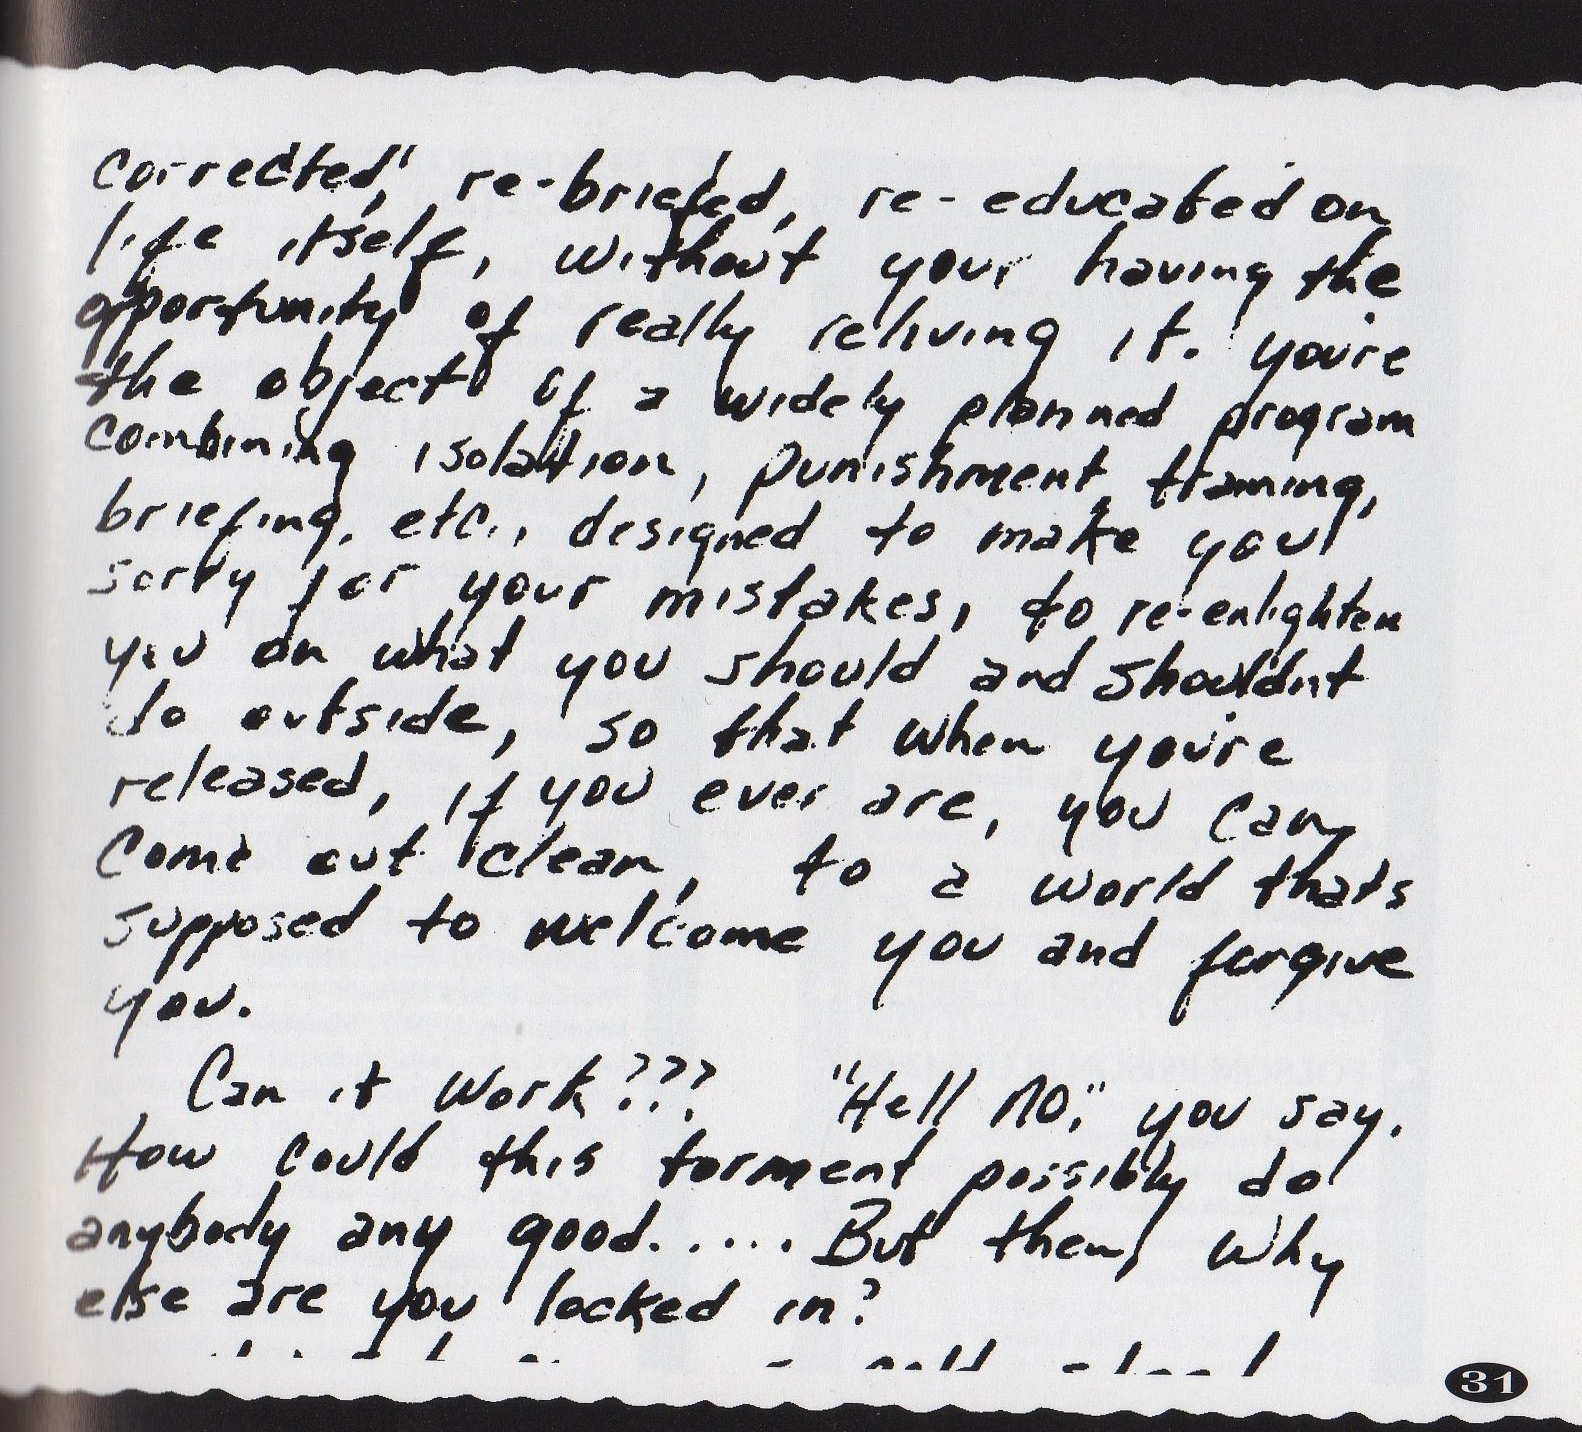 corrected," re-briefed, re-educated on
life itself, without your having the
opportunity of really reliving it. you're
the object of a widely planned program
combining isolation, punishment, training,
briefing, etc., designed to make you
sorry for your mistakes, to re-enlighten
you on what you should and shouldn't
do outside, so that when you're
released, if you ever are, you can
come out clean, to a world that's
supposed to welcome you and forgive
you.
Can it work??? "Hell no," you say.
How could this torment possibly do
anybody any good..... But then, why
else are you locked in?
31